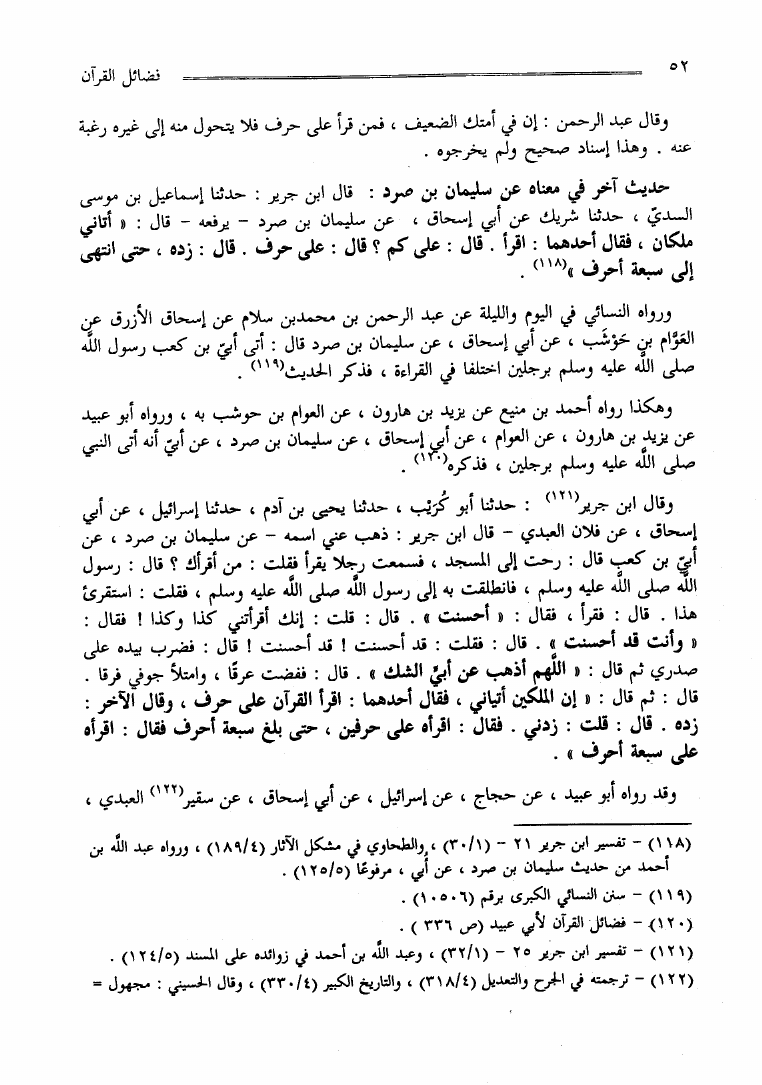 ٥٢
فضائل القرآن
وقال عبد الرحمن : إن في أمتك الضعيف ، فمن قرأ على حرف فلا يتحول منه إلى غيره رغبة
عنه . وهذا إسناد صحيح ولم يخرجوه .
حديث آخر في معناه عن سليمان بن صرد : قال ابن جرير : حدثنا إسماعيل بن موسى
السديّ ، حدثنا شريك عن أبي إسحاق ، عن سليمان بن صرد - يرفعه - قال : « أتاني
ملكان ، فقال أحدهما : اقرأ . قال : على كم ؟ قال : على حرف . قال : زده ، حتى انتهى
إلى سبعة أحرف »(١١٨) .
ورواه النسائي في اليوم والليلة عن عبد الرحمن بن محمدبن سلام عن إسحاق الأزرق عن
العَوَّام بن حَوْشَب ، عن أبي إسحاق ، عن سليمان بن صرد قال : أتى أبيّ بن كعب رسول اللَّه
صلى اللَّه عليه وسلم برجلين اختلفا في القراءة ، فذكر الحديث(١١٩) .
وهكذا رواه أحمد بن منيع عن يزيد بن هارون ، عن العوام بن حوشب به ، ورواه أبو عبيد
عن يزيد بن هارون ، عن العوام ، عن أبي إسحاق ، عن سليمان بن صرد ، عن أبيّ أنه أتى النبي
صلى اللَّه عليه وسلم برجلين ، فذكره(١٢٠) .
وقال ابن جرير(١٢١) : حدثنا أبو كُرَيْب ، حدثنا يحيى بن آدم ، حدثنا إسرائيل ، عن أبي
إسحاق ، عن فلان العبدي - قال ابن جرير : ذهب عني اسمه - عن سليمان بن صرد ، عن
أبيّ بن كعب قال : رحت إلى المسجد ، فسمعت رجلا يقرأ فقلت : من أقرأك ؟ قال : رسول
اللَّه صلى اللَّه عليه وسلم ، فانطلقت به إلى رسول اللَّه صلى اللَّه عليه وسلم ، فقلت : استقرئ
هذا . قال : فقرأ ، فقال : « أحسنت » . قال : قلت : إنك أقرأتني كذا وكذا ! فقال :
« وأنت قد أحسنت » . قال : فقلت : قد أحسنت ! قد أحسنت ! قال : فضرب بيده على
صدري ثم قال : « اللَّهم أذهب عن أبيٍّ الشك » . قال : ففضت عرقًا ، وامتلأ جوفي فرقا .
قال : ثم قال : « إن الملكين أتياني ، فقال أحدهما : اقرأ القرآن على حرف ، وقال الآخر :
زده . قال : قلت : زدني . فقال : اقرأه على حرفين ، حتى بلغ سبعة أحرف فقال : اقرأه
على سبعة أحرف » .
وقد رواه أبو عبيد ، عن حجاج ، عن إسرائيل ، عن أبي إسحاق ، عن سقير(١٢٢) العبدي ،
(١١٨) - تفسير ابن جرير ٢١ - (٣٠/١) ، والطحاوي في مشكل الآثار (١٨٩/٤) ، ورواه عبد اللَّه بن
أحمد من حديث سليمان بن صرد ، عن أُبي ، مرفوعًا (١٢٥/٥) .
(١١٩) - سنن النسائي الكبرى برقم (١٠٥٠٦) .
(١٢٠) - فضائل القرآن لأبي عبيد (ص ٣٣٦ ) .
(١٢١) - تفسير ابن جرير ٢٥ - (٣٢/١) ، وعبد اللَّه بن أحمد في زوائده على المسند (١٢٤/٥) .
(١٢٢) - ترجمته في الجرح والتعديل (٣١٨/٤) ، والتاريخ الكبير (٣٣٠/٤) ، وقال الحسيني : مجهول =